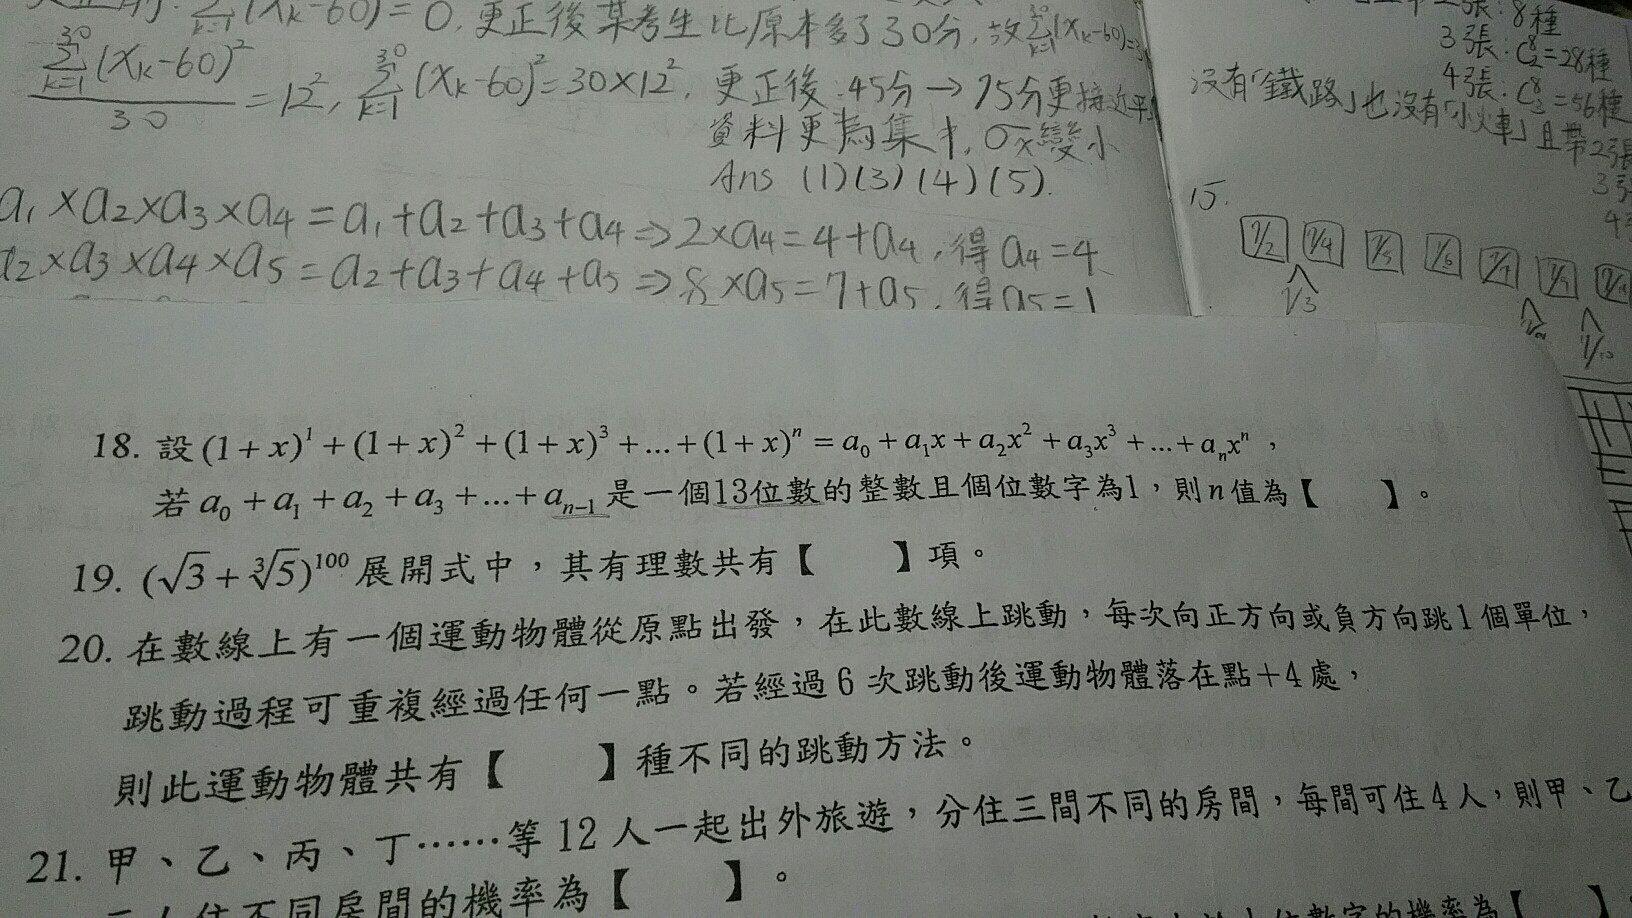 (xₖ-60)=0,更正後某考生比原本多了30分,故
∑ₖ₌₁³⁰(xₖ-60)²/30=12², ∑ₖ₌₁³⁰(xₖ-60)²=30×12². 更正後:45分→75分更接近平
資料更為集中,σₓ變小
Ans (1)(3)(4)(5).
a₁×a₂×a₃×a₄=a₁+a₂+a₃+a₄⇒2×a₄=4+a₄,得a₄=4
a₂×a₃×a₄×a₅=a₂+a₃+a₄+a₅⇒8×a₅=7+a₅,得a₅=1
2張:8種
3張:C₂⁸=28種
4張:C₃⁸=56種
沒有「鐵路」也沒有「小火車」且帶2張
15.
1/2 1/4 1/5 1/6 1/7
1/3
18. 設(1+x)¹+(1+x)²+(1+x)³+...+(1+x)ⁿ=a₀+a₁x+a₂x²+a₃x³+...+aₙxⁿ,
若a₀+a₁+a₂+a₃+...+aₙ₋₁是一個13位數的整數且個位數字為1,則n值為【 】。
19. (√3+∛5)¹⁰⁰展開式中,其有理數共有【 】項。
20. 在數線上有一個運動物體從原點出發,在此數線上跳動,每次向正方向或負方向跳1個單位,
跳動過程可重複經過任何一點。若經過6次跳動後運動物體落在點+4處,
則此運動物體共有【 】種不同的跳動方法。
21. 甲、乙、丙、丁……等12人一起出外旅遊,分住三間不同的房間,每間可住4人,則甲、乙
二人住不同房間的機率為【 】。
位數字的機率為【 】